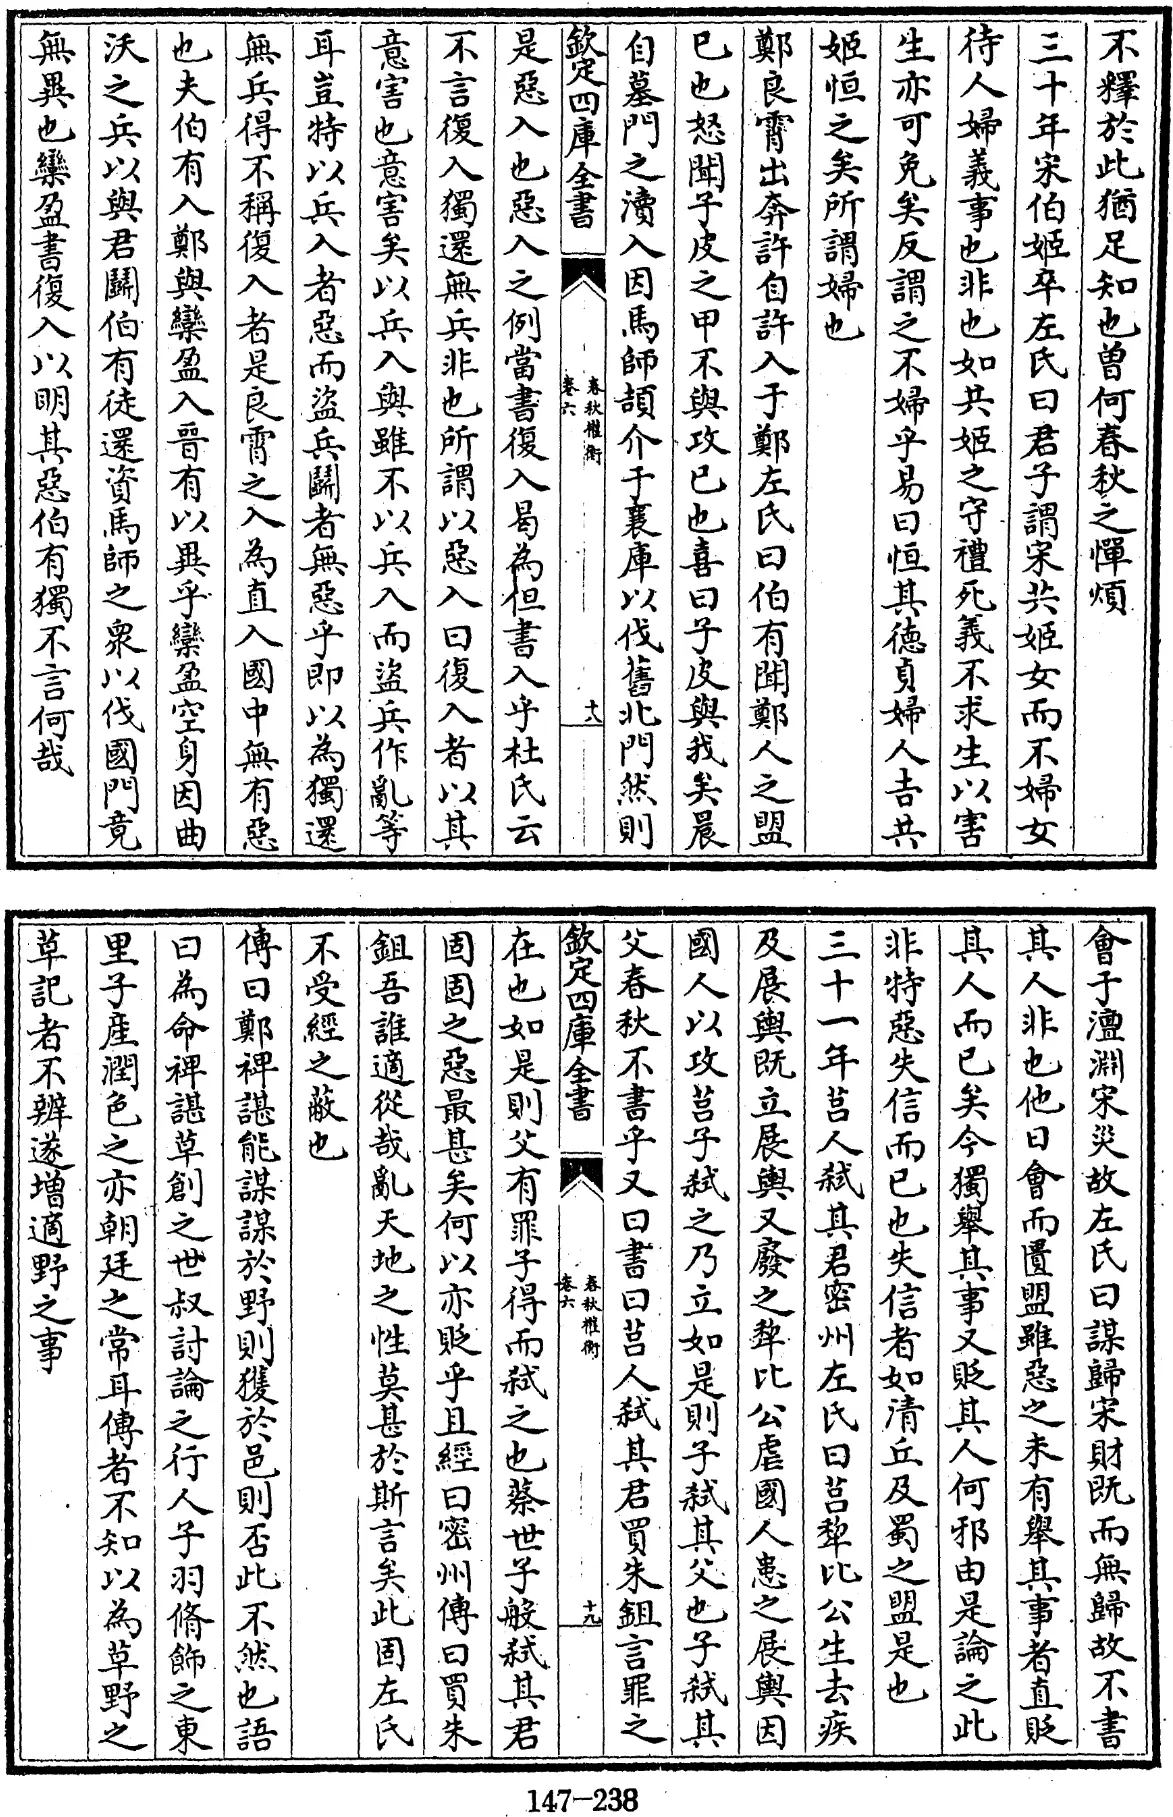 不釋於此猶足知也曽何春秋之憚煩
三十年宋伯姬卒左氏曰君子謂宋共姬女而不婦女
待人婦義事也非也如共姬之守禮死義不求生以害
生亦可免矣反謂之不婦乎易曰恒其德貞婦人吉共
姬恒之矣所謂婦也
鄭良霄出奔許自許入于鄭左氏曰伯有聞鄭人之盟
已也怒聞子皮之甲不與攻已也喜曰子皮與我矣晨
自墓門之瀆入因馬師頡介于襄庫以伐舊北門然則
欽定四庫全書
春秋權衡
卷六
十八
是惡入也惡入之例當書復入曷為但書入乎杜氏云
不言復入獨還無兵非也所謂以惡入曰復入者以其
意害也意害矣以兵入與雖不以兵入而盜兵作亂等
耳豈特以兵入者惡而盜兵鬭者無惡乎即以為獨還
無兵得不稱復入者是良霄之入為直入國中無有惡
也夫伯有入鄭與欒盈入晉有以異乎欒盈空身因曲
沃之兵以與君鬭伯有徒還資馬師之衆以伐國門竟
無異也欒盈書復入以明其惡伯有獨不言何哉
會于澶淵宋災故左氏曰謀歸宋財既而無歸故不書
其人非也他日會而匱盟雖惡之未有舉其事者直貶
其人而已矣今獨舉其事又貶其人何邪由是論之此
非特惡失信而已也失信者如清丘及蜀之盟是也
三十一年莒人弑其君密州左氏曰莒犂比公生去疾
及展輿既立展輿又廢之犂比公虐國人患之展輿因
國人以攻莒子弑之乃立如是則子弑其父也子弑其
父春秋不書乎又曰書曰莒人弑其君買朱鉏言罪之
欽定四庫全書
春秋權衡
卷六
十九
在也如是則父有罪子得而弑之也蔡世子般弑其君
固固之惡最甚矣何以亦貶乎且經曰密州傳曰買朱
鉏吾誰適從哉亂天地之性莫甚於斯言矣此固左氏
不受經之蔽也
傳曰鄭裨諶能謀謀於野則獲於邑則否此不然也語
曰為命裨諶草創之世叔討論之行人子羽脩飾之東
里子産潤色之亦朝廷之常耳傳者不知以為草野之
草記者不辨遂增適野之事
147-238